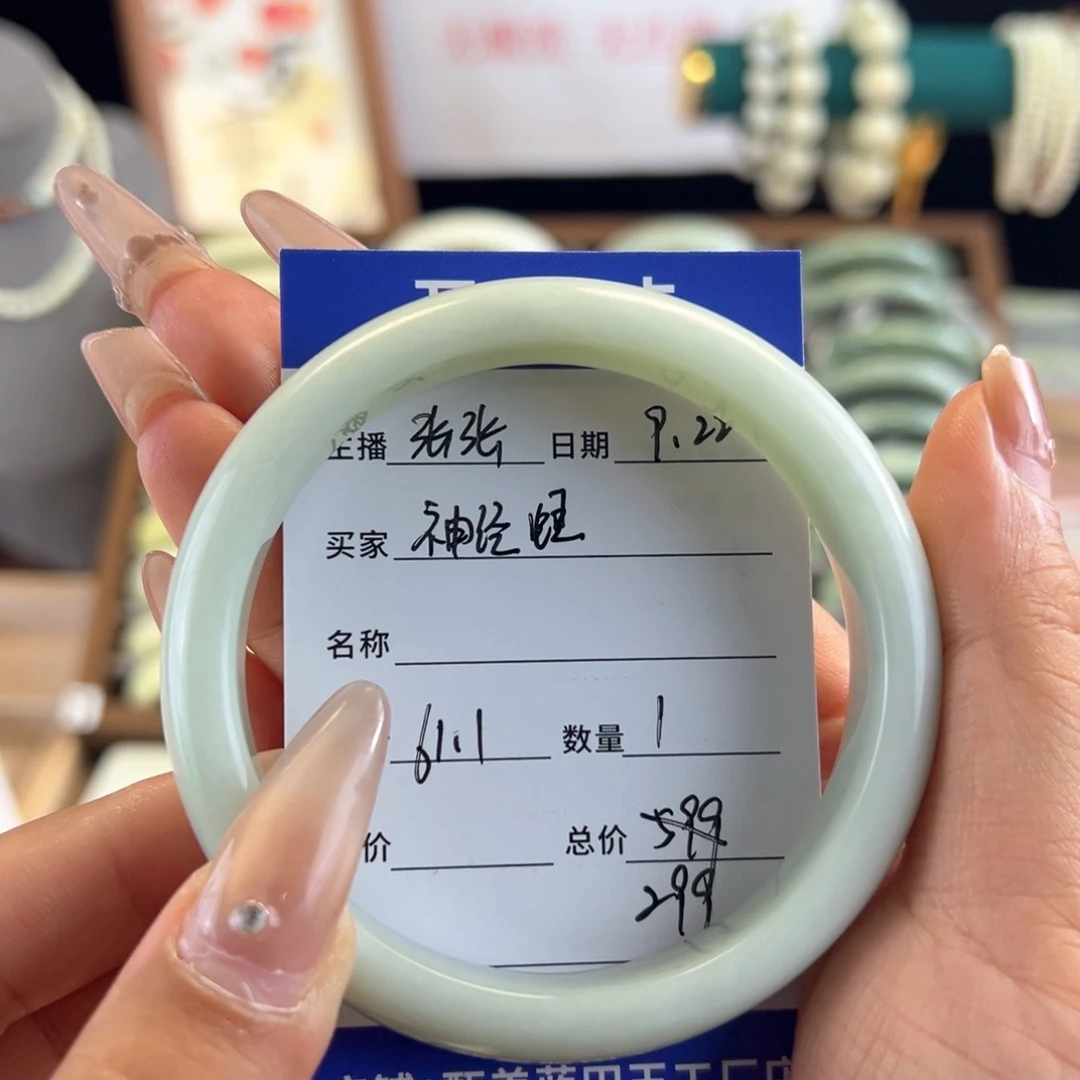 主播 张张 日期 9.22
买家 神经蛙
名称
61.1 数量 1
价 总价 599
299